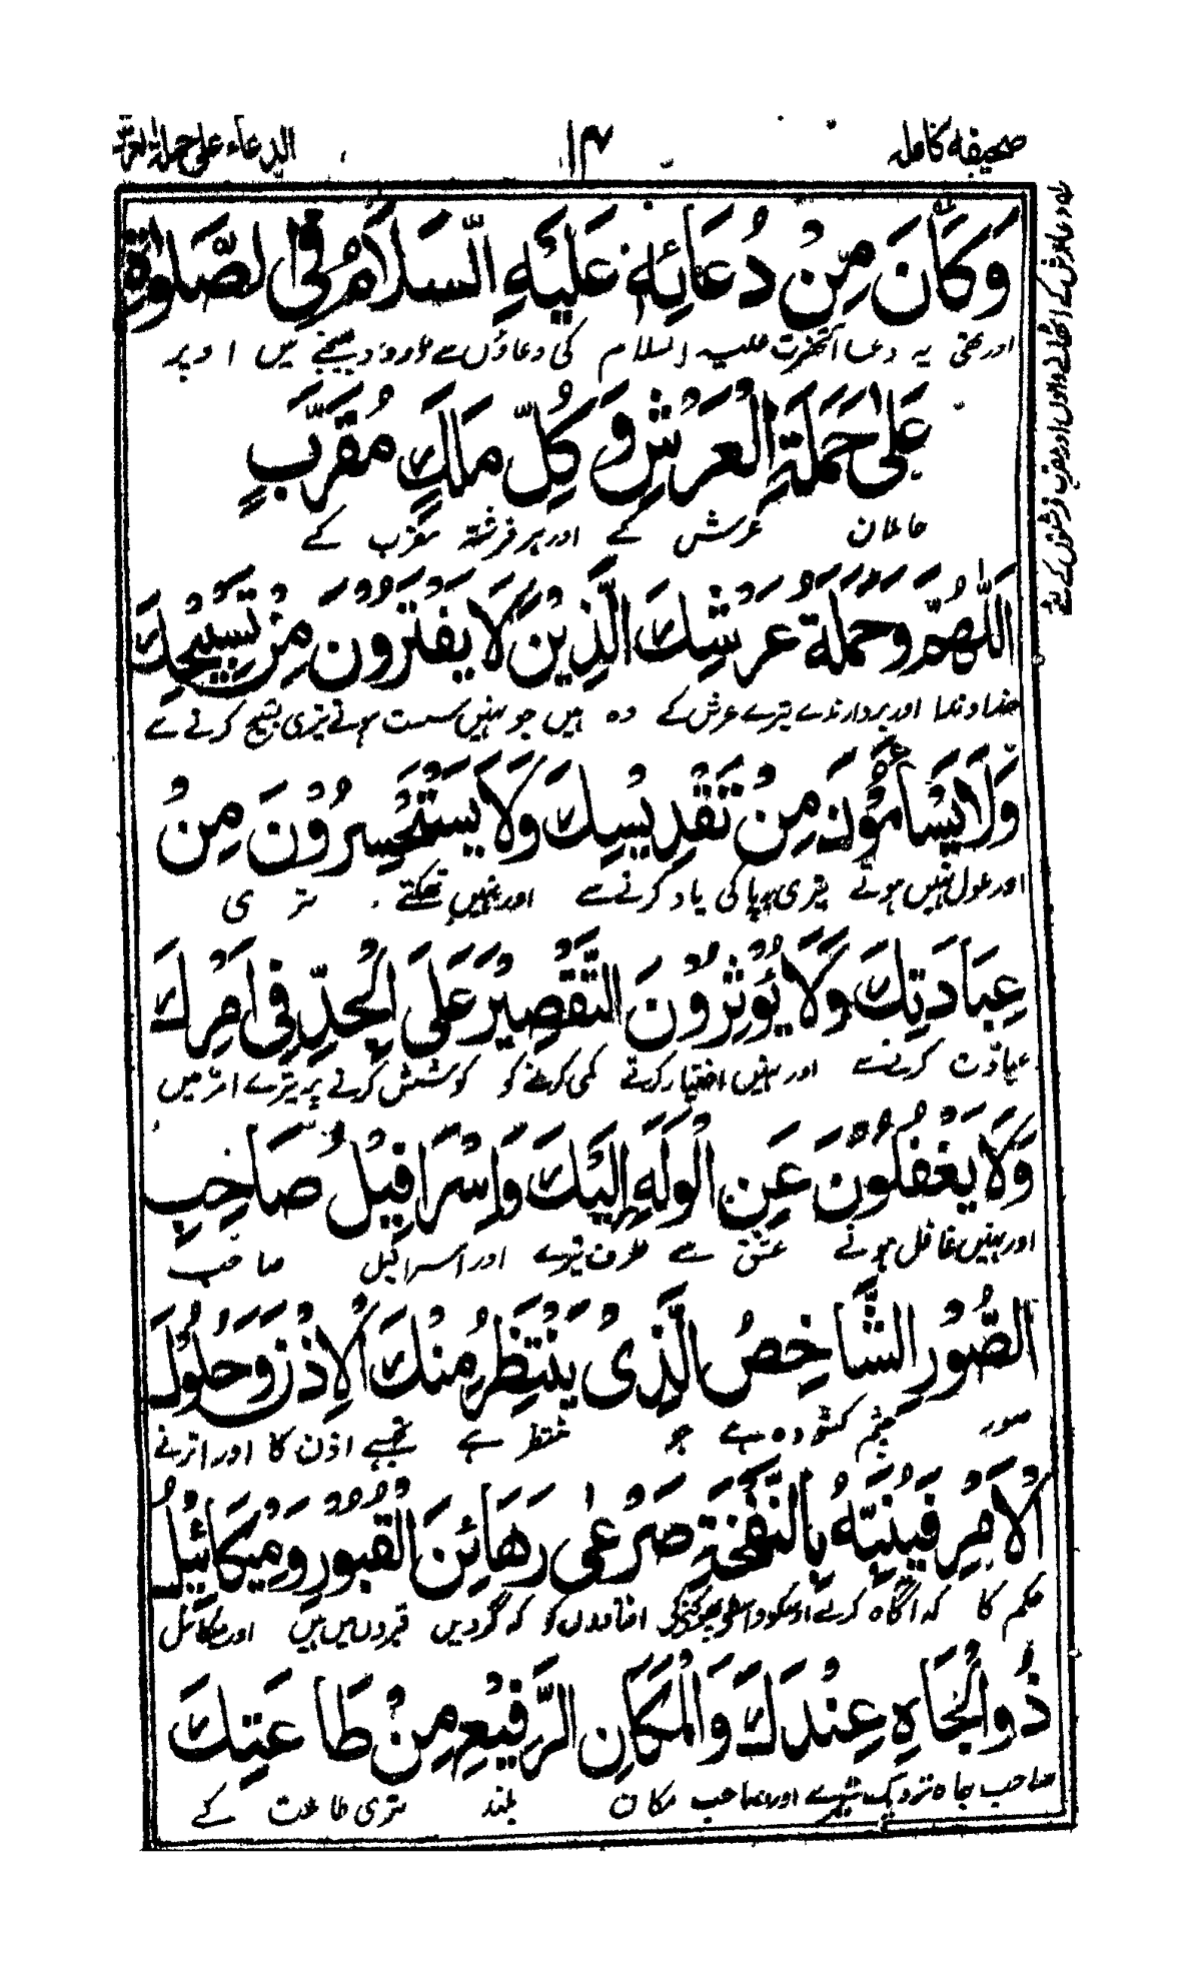 صحیفہ کاملہ
۱۴
الدعاء علی حملة العرش
وَكَانَ مِنْ دُعَائِهٖ عَلَيْهِ السَّلَامُ فِي الصَّلٰوةِ
اور تھی یہ دعا آنحضرت علیہ السلام کی دعاؤں سے درود بھیجنے میں اوپر
عَلٰى حَمَلَةِ الْعَرْشِ وَ كُلِّ مَلَكٍ مُقَرَّبٍ
حاملان عرش کے اور ہر فرشتہ مقرب کے
اَللّٰهُمَّ وَحَمَلَةُ عَرْشِكَ الَّذِيْنَ لَا يَفْتَرُوْنَ مِنْ تَسْبِيْحِكَ
خداوندا اور بردارندے تیرے عرش کے وہ ہیں جو نہیں سست ہوتے تیری تسبیح کرنے سے
وَلَا يَسْأَمُوْنَ مِنْ تَقْدِيْسِكَ وَلَا يَسْتَحْسِرُوْنَ مِنْ
اور ملول نہیں ہوتے تیری پاکی یاد کرنے سے اور نہیں تھکتے تیری
عِبَادَتِكَ وَلَا يُؤْثِرُوْنَ التَّقْصِيْرَ عَلَى الْجِدِّ فِي اَمْرِكَ
عبادت کرنے سے اور نہیں اختیار کرتے کمی کرنے کو کوشش کرنے پر تیرے امر میں
وَلَا يَغْفُلُوْنَ عَنِ الْوَلَهِ اِلَيْكَ وَاِسْرَافِيْلُ صَاحِبُ
اور نہیں غافل ہوتے عشق سے طرف تیرے اور اسرافیل صاحب
الصُّوْرِ الشَّاخِصُ الَّذِيْ يَنْتَظِرُ مِنْكَ الْاِذْنَ وَحُلُوْلَ
صور چشم کشودہ ہے جو منتظر ہے تجھسے اذن کا اور اترنے
الْاَمْرِ فَيُنَبِّهُ بِالنَّفْخَةِ صَرْعٰى رَهَائِنِ الْقُبُوْرِ وَمِيْكَائِيْلُ
حکم کا کہ آگاہ کرے افتادوں کو کہ گرد ہیں قبروں میں ہیں اور میکائیل
ذُو الْجَاهِ عِنْدَكَ وَالْمَكَانِ الرَّفِيْعِ مِنْ طَاعَتِكَ
صاحب جاہ نزدیک تیرے اور صاحب مکان بلند تیری طاعت کے
دعا عرش کے اٹھانے والوں اور مقرب فرشتوں کے لئے